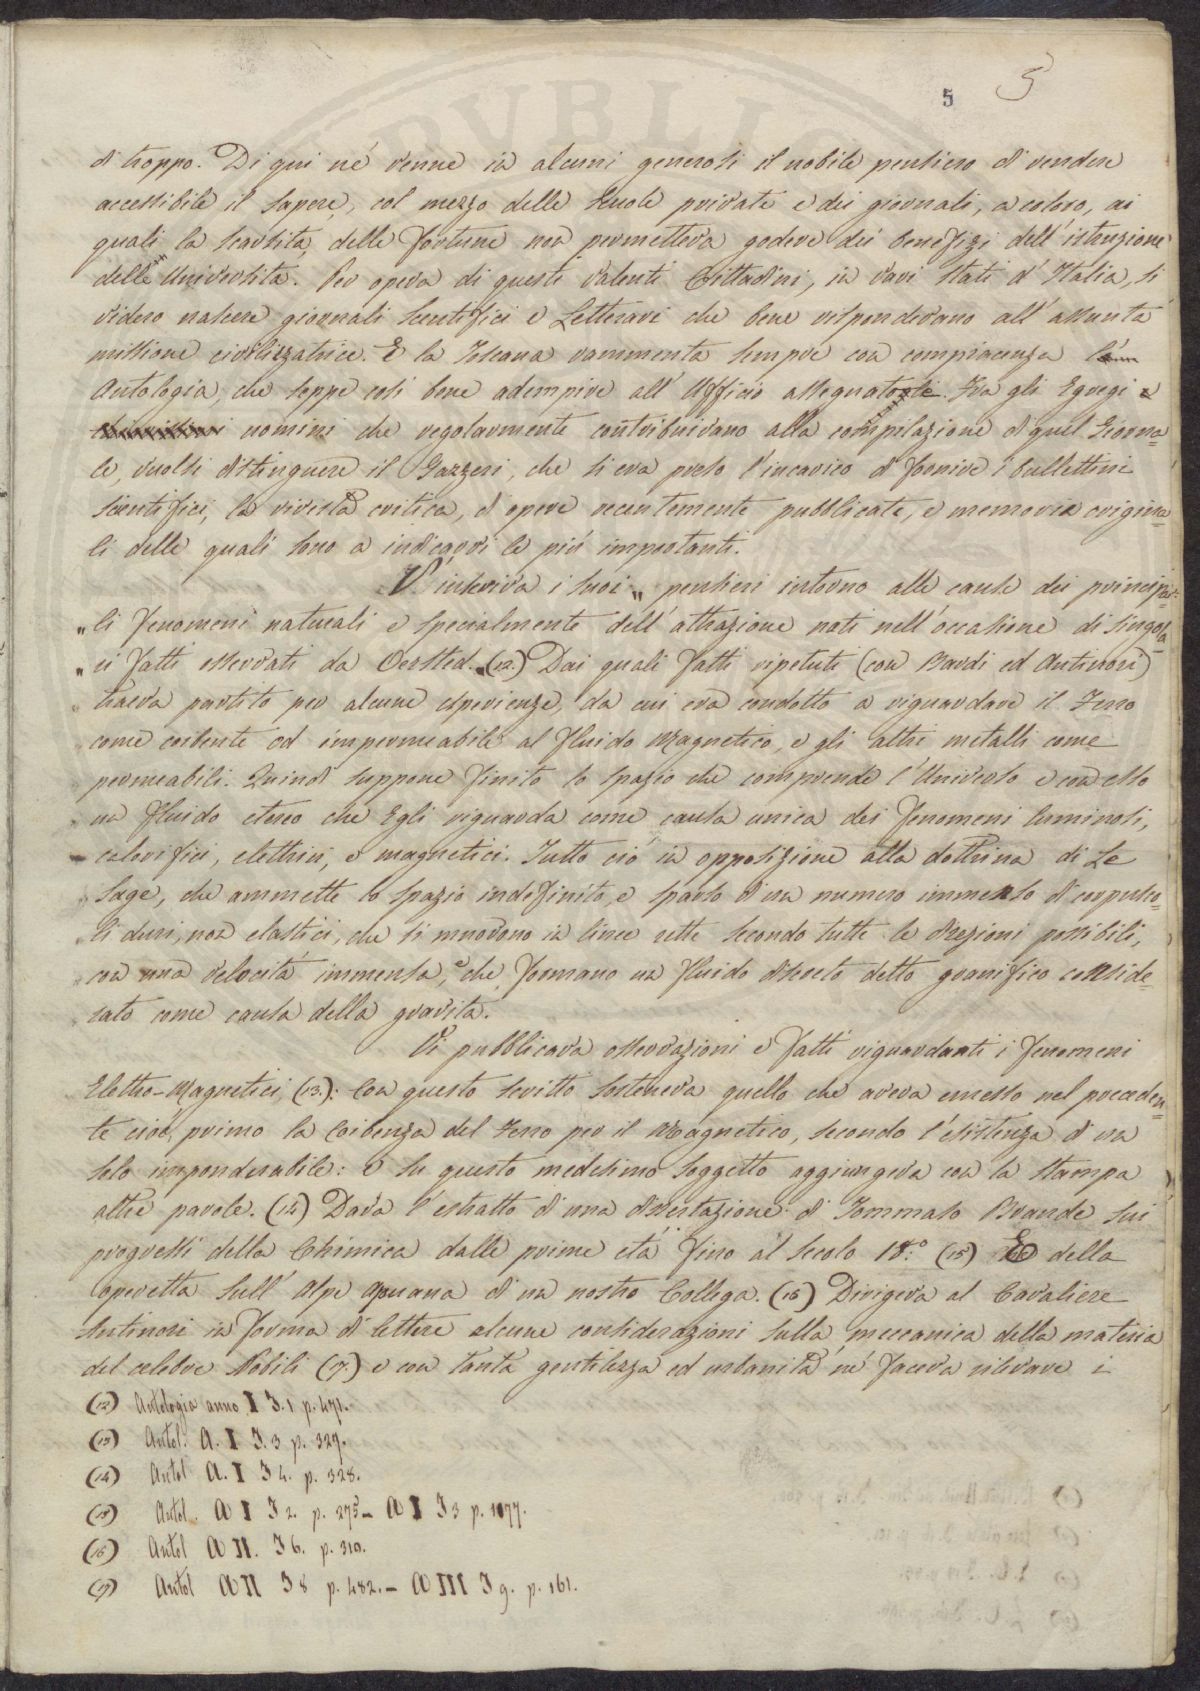 5 5
di troppo. Di qui né venne in alcuni generosi il nobile pensiero di rendere
accessibile il sapere, col mezzo delle Scuole private e dei giornali, a coloro, ai
quali la scarsità delle fortune non permetteva godere dei benefizi dell'istruzione
delle Università. Per opera di questi valenti Cittadini, in vari stati d'Italia, si
videro nascere giornali scentifici e Letterari che bene rispondevano all'assunta
missione civilizzatrice. E la Toscana rammenta sempre con compiacenza l'
Antologia, che seppe così bene adempire all'Ufficio assegnatole. Fra gli Egregi
uomini che regolarmente contribuivano alla compilazione di quel Giorna=
le, vuolsi distinguere il Gazzeri, che si era preso l'incarico di fornire i bullettini
scientifici, la rivista critica, di opere recentemente pubblicate, e memorie origina=
li delle quali sono a indicarvi le più importanti.
V'inseriva i suoi „ pensieri intorno alle cause dei principa=
„ li fenomeni naturali e specialmente dell'attrazione nati nell'occasione di singola
„ ri fatti osservati da Oersted. „ (12.) Dai quali fatti ripetuti (con Bardi ed Antinori)
traeva partito per alcune esperienze, da cui era condotto a riguardare il Ferro
come coibente od impermeabile al fluido Magnetico, e gli altri metalli come
permeabili. Quindi suppone finito lo spazio che comprende l'Universo e con esso
un fluido etereo che Egli riguarda come causa unica dei fenomeni luminosi,
calorifici, elettrici, e magnetici. Tutto ciò in opposizione alla dottrina di Le
Sage, che ammette lo spazio indefinito, e sparso di un numero immenso di corpusco=
li duri, non elastici, che si muovono in linee rette secondo tutte le direzioni possibili,
con una velocità immensa, e che formano un fluido discreto detto gravifico conside=
rato come causa della gravità.
Vi pubblicava osservazioni e fatti riguardanti i fenomeni
Elettro-Magnetici (13.): Con questo scritto sosteneva quello che aveva emesso nel preceden=
te cioè, primo la coibenza del Ferro per il Magnetico, secondo l'esistenza di un
solo imponderabile: e su questo medesimo soggetto aggiungeva con la stampa
altre parole. (14) Dava l'estratto di una dissertazione di Tommaso Brande sui
progressi della Chimica dalle prime età fino al secolo 18.° (15) E della
operetta sull'Alpe Apuana di un nostro Collega. (16) Dirigeva al Cavaliere
Antinori in forma di lettere alcune considerazioni sulla meccanica della materia
del celebre Nobili (17.) e con tanta gentilezza ed urbanità né faceva rilevare i
(12) Antologia anno I T. 1 p. 471.
(13) Antol. A. I T. 3 p. 327.
(14) Antol A. I T 4. p. 328.
(15) Antol. A I T 2. p. 275 - A I T 3 p. 177.
(16) Antol A II. T 6. p. 310.
(17) Antol A II T 8 p. 482. - A III T 9. p. 161.